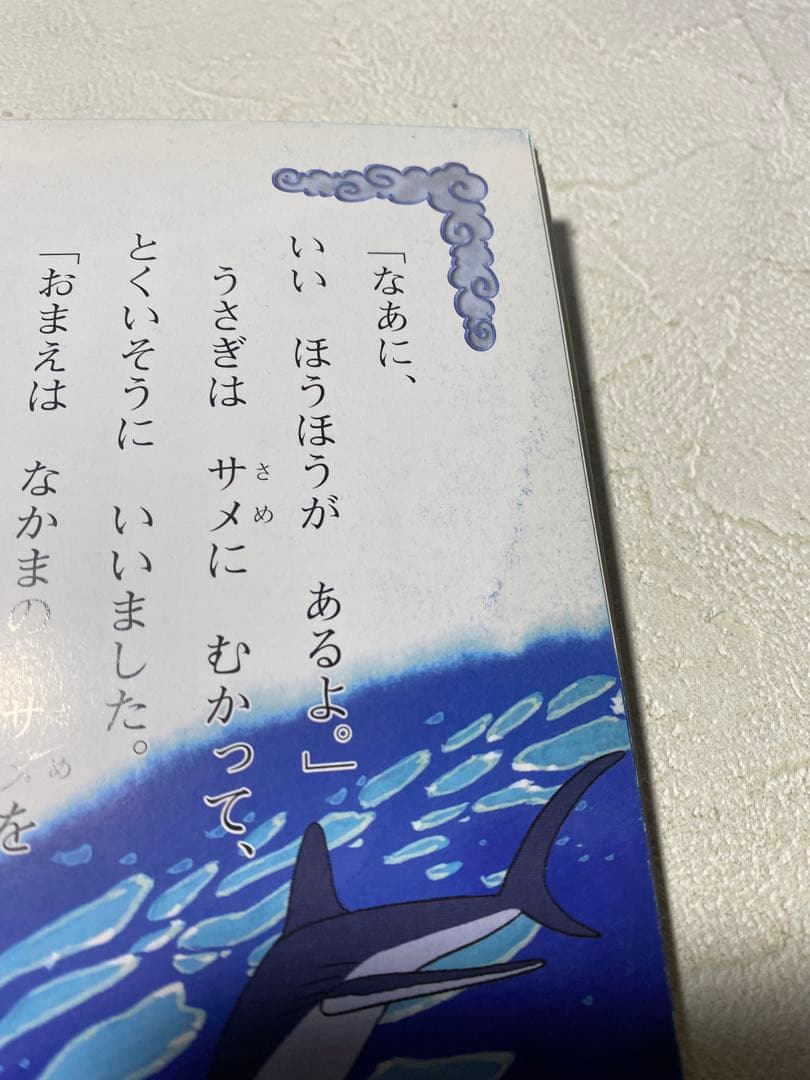 「なあに、
いい ほうほうが あるよ。」
うさぎは サメに むかって、
さめ
とくいそうに いいました。
「おまえは なかまの サメを
め